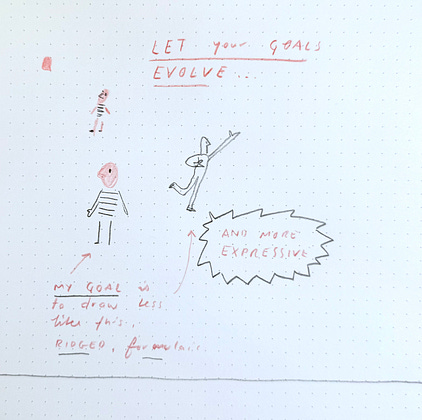 LET your GOALS
EVOLVE...
AND MORE
EXPRESSIVE
MY GOAL is
to draw less
like this,
RIDGED, formulaic.